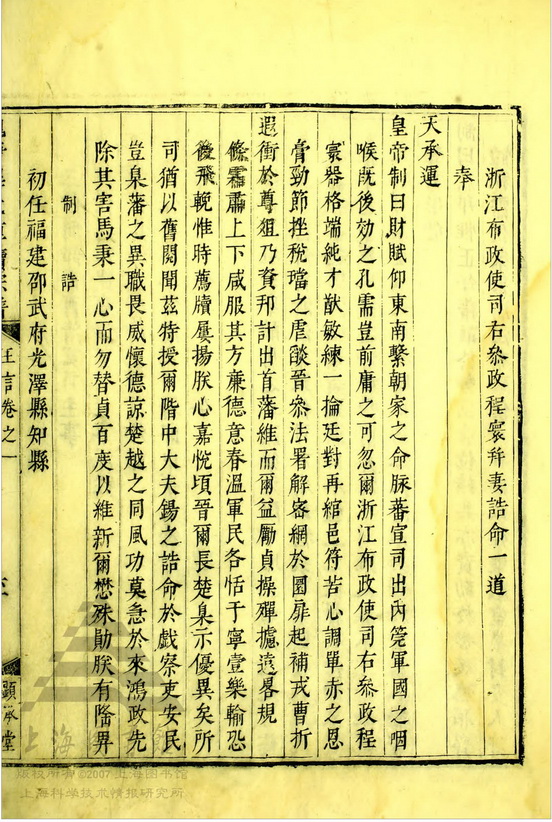 浙江布政使司右叅政程寰幷妻誥命一道
奉
天承運
皇帝制曰財賦仰東南繫朝家之命脉蕃宣司出內筦軍國之咽
喉旣後効之孔需豈前庸之可忽爾浙江布政使司右叅政程
寰器格端純才猷敏練一掄廷對再綰邑符苦心調單赤之恩
膏勁節挫稅璫之虐燄晉叅法署解密網於圜扉起補戎曹折
遐衝於尊俎乃資邦計出首藩維而爾益勵貞操殫攄遠畧規
條肅上下咸服其方亷德意春溫軍民各恬于寧壹樂輸恐
後飛輓惟時薦牘屢揚朕心嘉悅頃晉爾長楚臬示優異矣所
司猶以舊閥聞茲特授爾階中大夫錫之誥命於戲察吏安民
豈臬藩之異職畏威懷德諒楚越之同風功莫急於來鴻政先
除其害馬秉一心而勿替貞百度以維新爾懋殊勛朕有隆畀
制誥
初任福建邵武府光澤縣知縣
王言卷之一
顯承堂
版权所有©2007上海图书馆
上海科学技术情报研究所